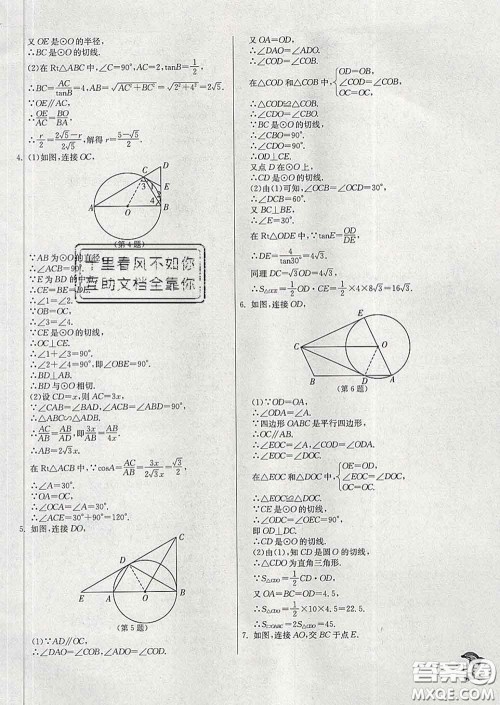 又 OE 是⊙O 的半径,
∴BC 是⊙O 的切线.
(2)在 Rt△ABC 中,∠C=90°,AC=2,tanB=1/2,
∴BC=AC/tanB=4,AB=√(AC²+BC²)=√(2²+4²)=2√5.
∵OE∥AC,
∴OE/AC=BO/BA.
∴r/2=(2√5-r)/2√5,解得 r=(5-√5)/2.
4. (1)如图,连接 OC,
D
C
E
A
O
B
(第 4 题)
∵AB 为⊙O 的直径,
∴∠ACB=90°.
∵E 为 BD 的中点,
∴CE=BE=DE.
∴∠1=∠2.
∵OC=OB,
∴∠3=∠4.
∵CE 是⊙O 的切线,
∴OC⊥CE.
∴∠1+∠3=90°.
∴∠2+∠4=90°,即∠OBE=90°.
∴BD⊥AB.
∴BD 与⊙O 相切.
(2)设 CD=x,则 AC=3x,
∵∠CAB=∠BAD,∠ACB=∠ABD=90°,
∴△ABC∽△ADB.
∴AC/AB=AB/AD,即3x/AB=AB/4x.
∴AB=2√3x.
在 Rt△ACB 中,∵cosA=AC/AB=3x/2√3x=√3/2,
∴∠A=30°.
∵OA=OC,
∴∠ACO=∠A=30°.
∴∠ACE=30°+90°=120°.
5. 如图,连接 DO,
C
D
E
A
O
B
(第 5 题)
(1)∵AD∥OC,
∴∠DAO=∠COB,∠ADO=∠COD.
又∵OA=OD,
∴∠DAO=∠ADO.
∴∠COD=∠COB.
在△COD 和△COB 中,{OD=OB, ∠COD=∠COB, OC=OC,
∴△COD≌△COB.
∴∠CDO=∠CBO.
∵BC 是⊙O 的切线,
∴∠CBO=90°.
∴∠CDO=90°.
∴OD⊥CE.
又∵点 D 在⊙O 上,
∴CD 是⊙O 的切线.
(2)由(1)可知,∠OCB=∠OCD=30°,
∴∠DCB=60°.
又∵BC⊥BE,
∴∠E=30°.
在 Rt△ODE 中,∵tanE=OD/DE,
∴DE=4/tan30°=4√3.
同理 DC=√3OD=4√3.
∴S△OCE=1/2·OD·CE=1/2×4×8√3=16√3.
6. 如图,连接 OD,
E
C
O
B
D
A
(第 6 题)
(1)∵OD=OA,
∴∠ODA=∠A.
∵四边形 OABC 是平行四边形,
∴OC∥AB.
∴∠EOC=∠A,∠COD=∠ODA.
∴∠EOC=∠DOC.
在△EOC 和△DOC 中,{OE=OD, ∠EOC=∠DOC, OC=OC,
∴△EOC≌△DOC.
∴∠ODC=∠OEC=90°.
即 OD⊥DC.
∴CF 是⊙O 的切线.
(2)由(1),知 CD 是圆 O 的切线,
∴△CDO 为直角三角形.
∵S△CDO=1/2CD·OD,
又 OA=BC=OD=4.5,
∴S△CDO=1/2×10×4.5=22.5.
∴S▱OABC=2S△CDO=45.
7. 如图,连接 AO,交 BC 于点 E.
千里春风不如你
互助文档全靠你
答案圈
MXQE.COM